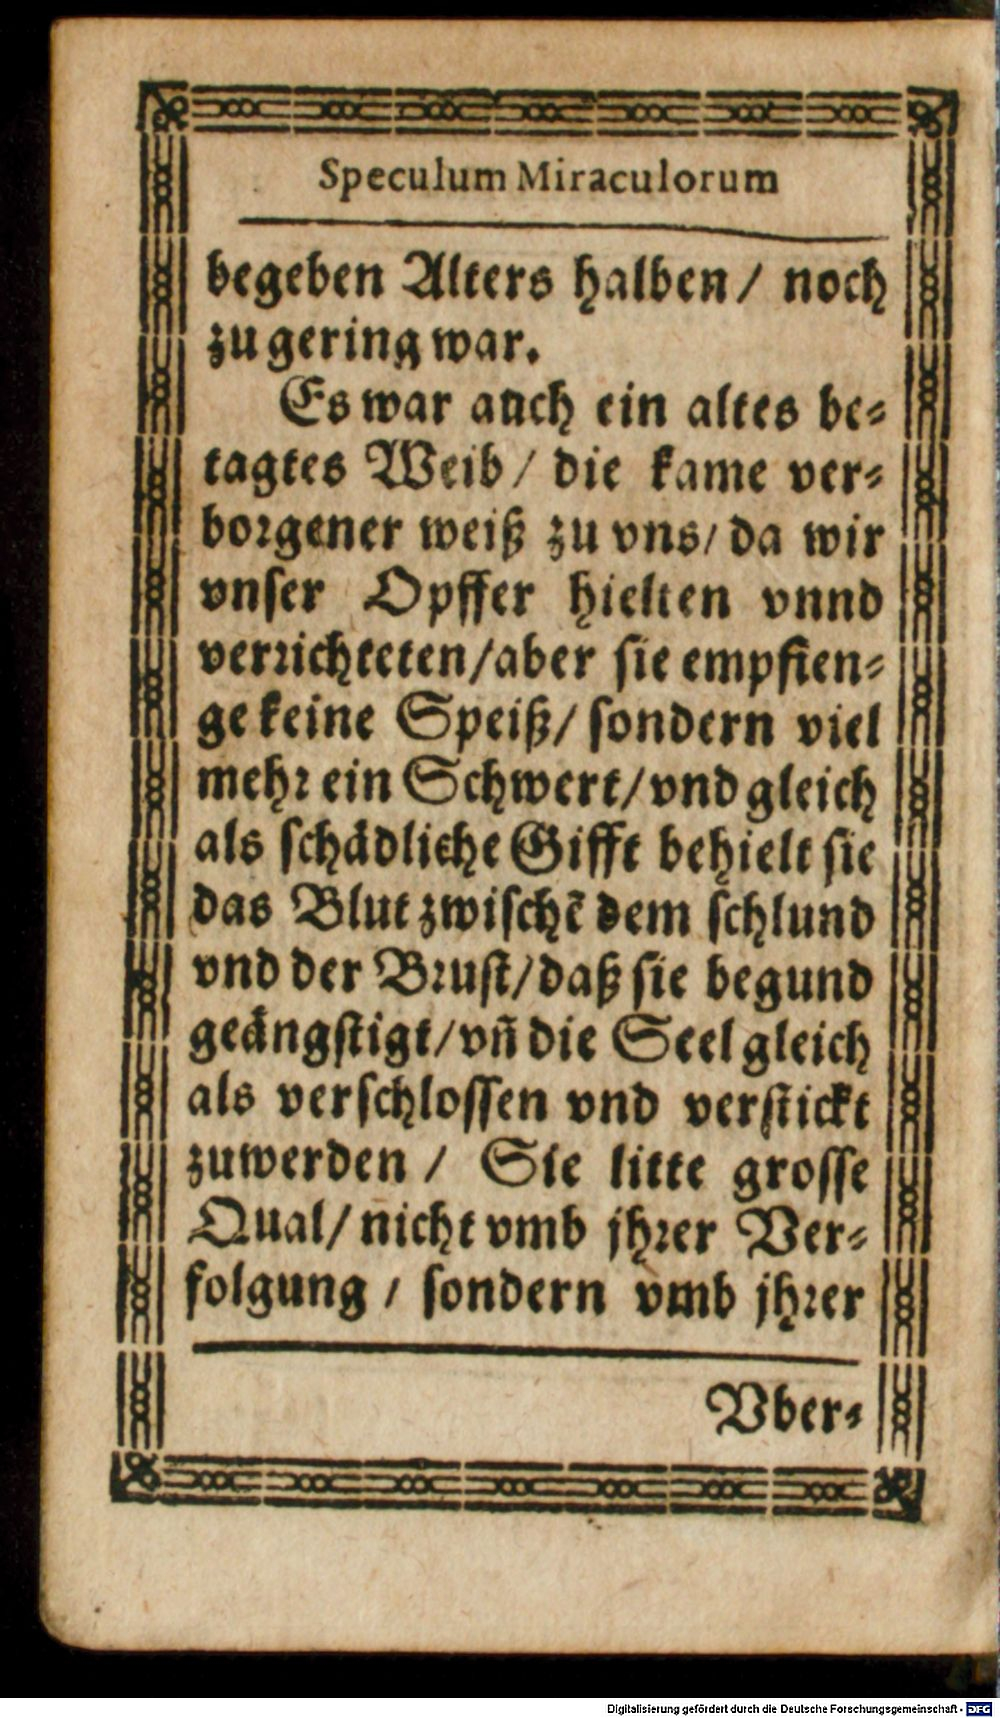 Speculum Miraculorum
begeben Alters halben / noch
zu gering war.
Es war auch ein altes be⸗
tagtes Weib / die kame ver⸗
borgener weiß zu vns / da wir
vnser Opffer hielten vnnd
verrichteten / aber sie empfien⸗
ge keine Speiß / sondern viel
mehr ein Schwert / vnd gleich
als schädliche Gifft behielt sie
das Blut zwischẽ dem schlund
vnd der Brust / daß sie begund
geängstigt / vñ die Seel gleich
als verschlossen vnd verstickt
zuwerden / Sie litte grosse
Qual / nicht vmb jhrer Ver⸗
folgung / sondern vmb jhrer
Vber⸗
Digitalisierung gefördert durch die Deutsche Forschungsgemeinschaft - DFG